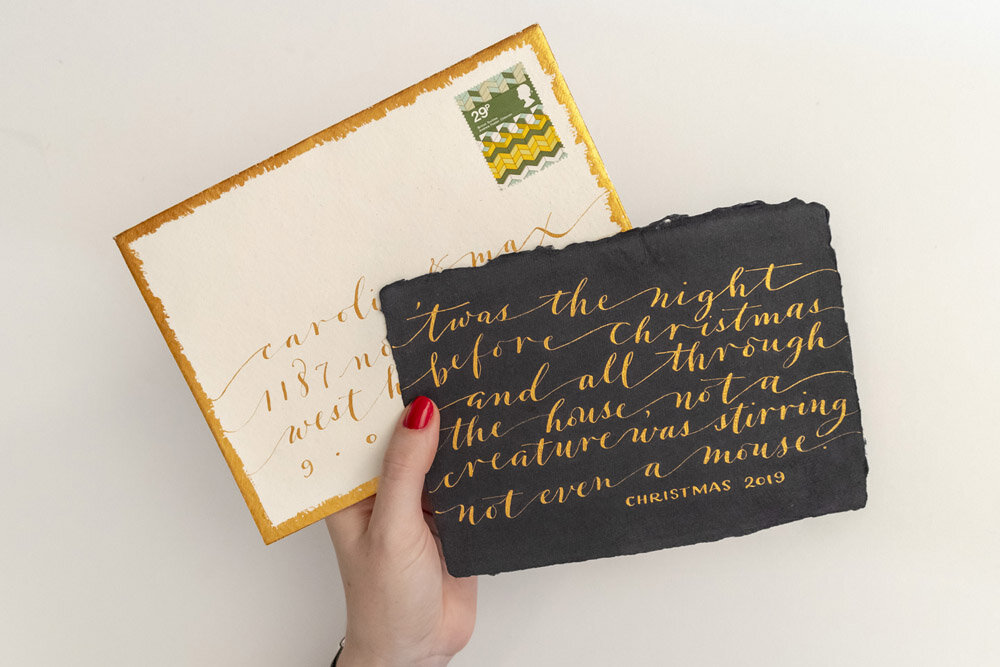 29P
& max
caroli
1187 no
west h
9 . 0
'twas the night
before Christmas
and all through
the house, not a
creature was stirring
not even a mouse.
CHRISTMAS 2019